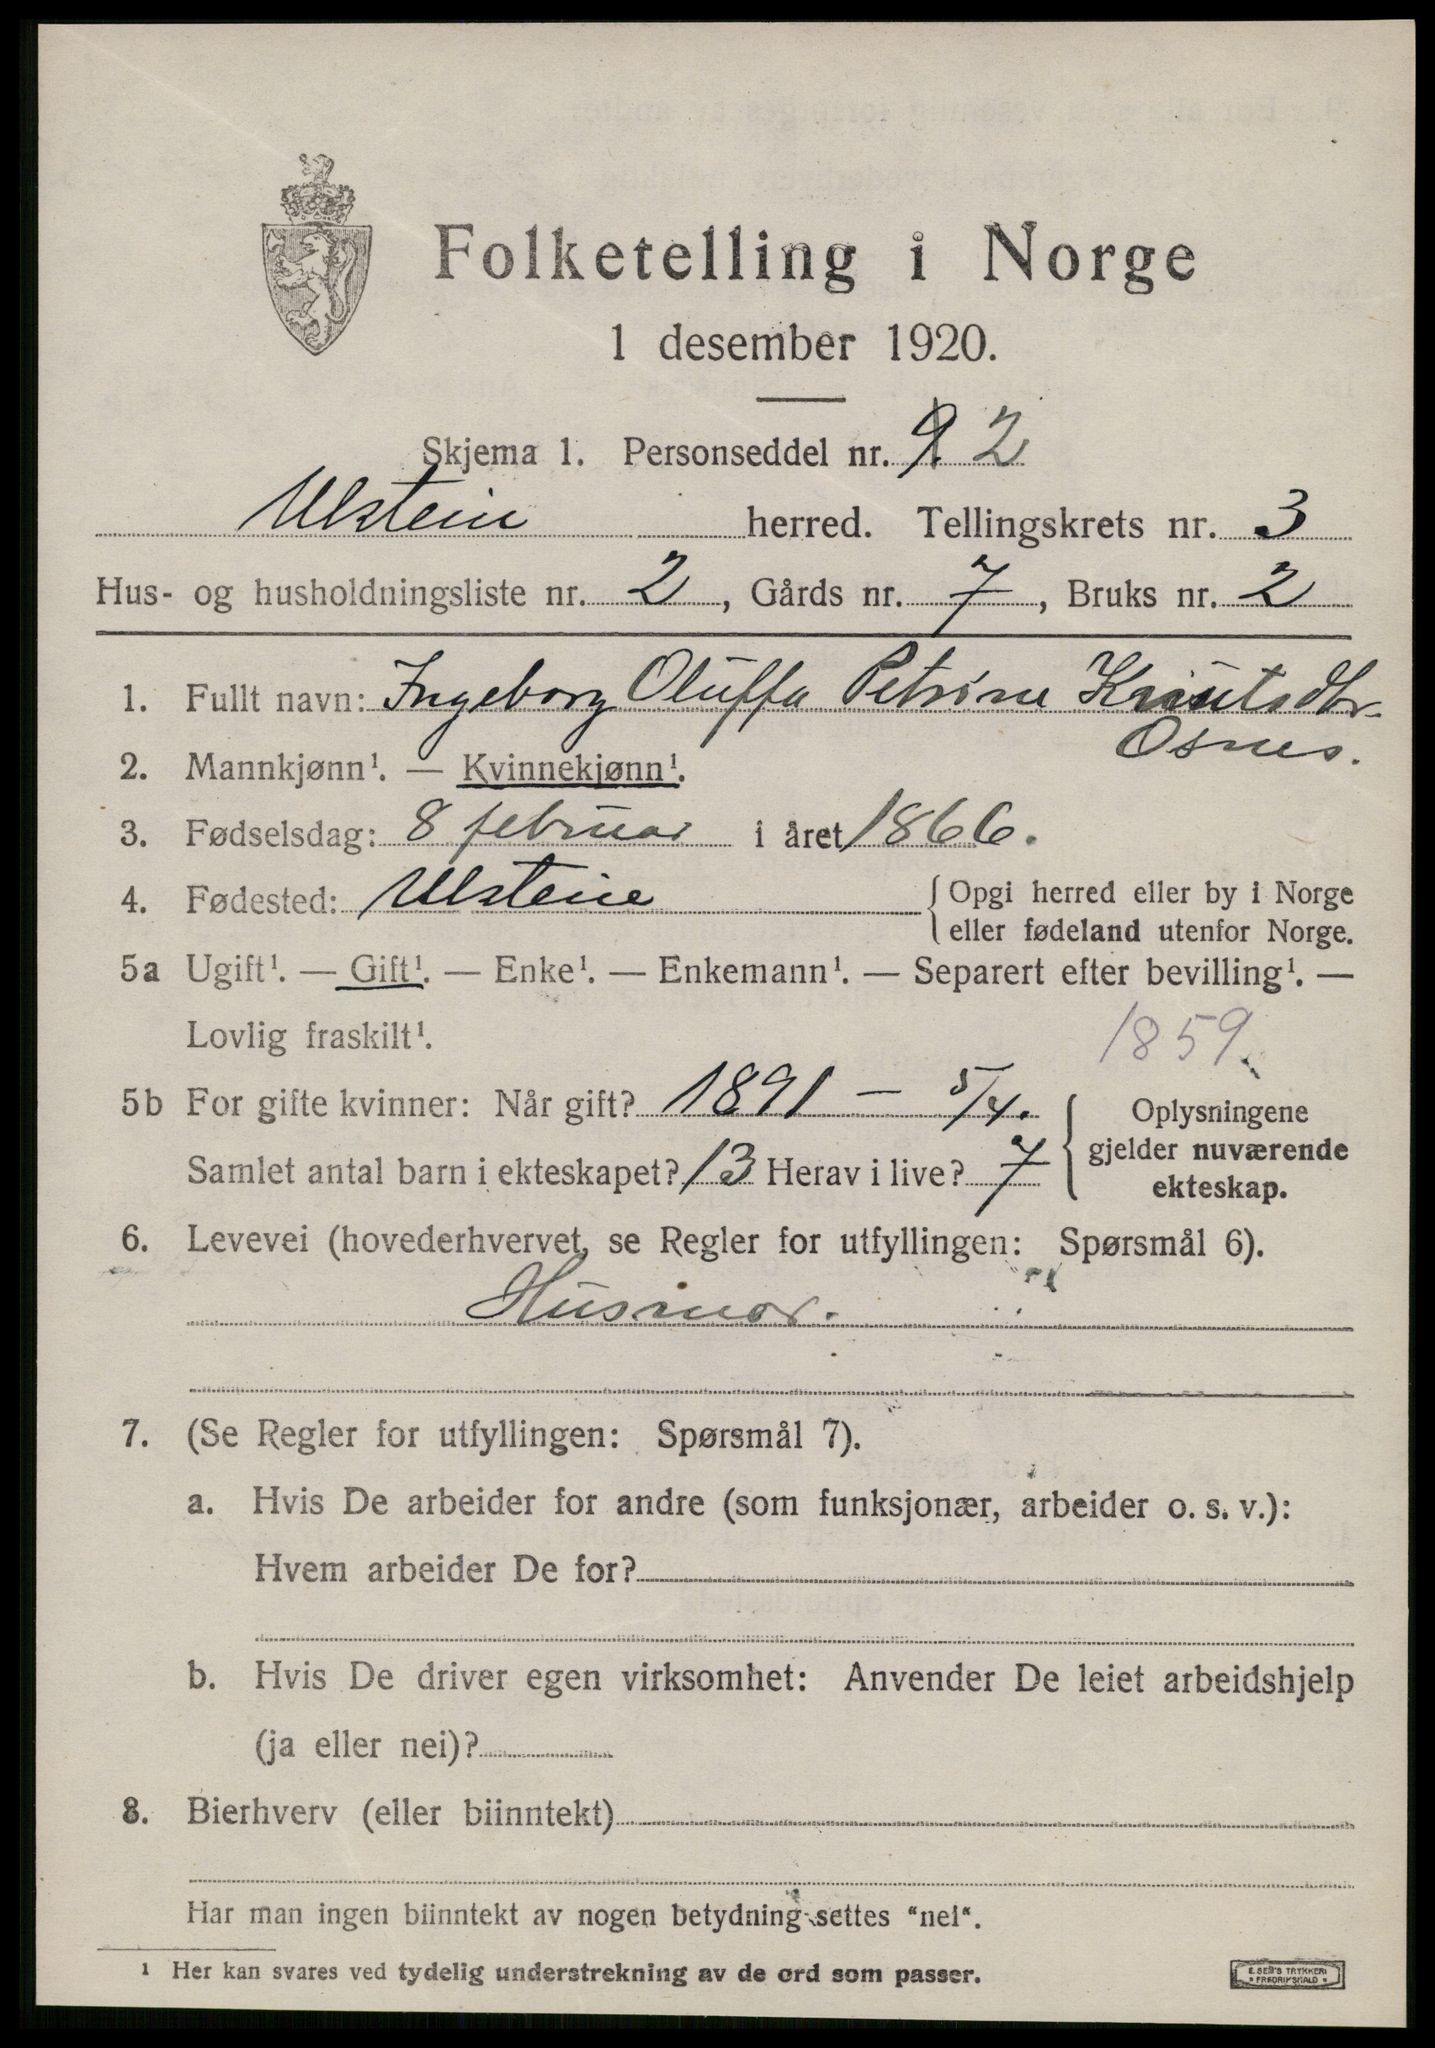 Folketelling i Norge
1 desember 1920.
Skjema 1. Personseddel nr. 9. 2
Ulstein herred. Tellingskrets nr. 3
Hus- og husholdningsliste nr. 2, Gårds nr. 7, Bruks nr. 2
1. Fullt navn: Ingeborg Oluffa Petrine Knutsdtr.
Osnes.
2. Mannkjønn¹. — Kvinnekjønn¹.
3. Fødselsdag: 8 februar i året 1866.
4. Fødested: Ulstein { Opgi herred eller by i Norge
eller fødeland utenfor Norge.
5a Ugift¹. — Gift¹. — Enke¹. — Enkemann¹. — Separert efter bevilling¹. —
Lovlig fraskilt¹. 1859
5b For gifte kvinner: Når gift? 1891 — 5/4. { Oplysningene
gjelder nuværende
Samlet antal barn i ekteskapet? 13 Herav i live? 7 ekteskap.
6. Levevei (hovederhvervet, se Regler for utfyllingen: Spørsmål 6).
Husmor.
7. (Se Regler for utfyllingen: Spørsmål 7).
a. Hvis De arbeider for andre (som funksjonær, arbeider o. s. v.):
Hvem arbeider De for?
b. Hvis De driver egen virksomhet: Anvender De leiet arbeidshjelp
(ja eller nei)?
8. Bierhverv (eller biinntekt)
Har man ingen biinntekt av nogen betydning settes "nei".
¹ Her kan svares ved tydelig understrekning av de ord som passer.
E. SEM'S TRYKKERI
• FREDRIKSHALD •